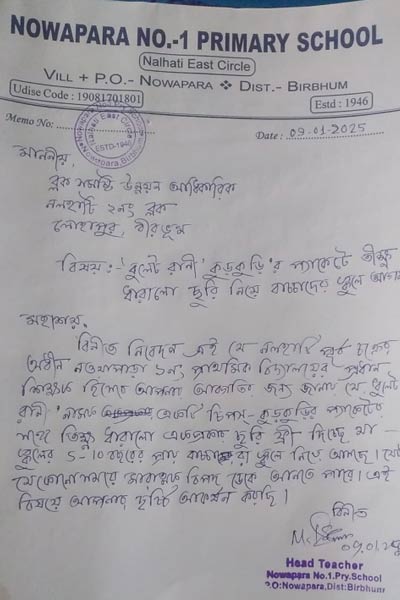 NOWAPARA NO.-1 PRIMARY SCHOOL
Nalhati East Circle
VILL + P.O.- NOWAPARA ❖ DIST.- BIRBHUM
Udise Code : 19081701801
Estd : 1946
Memo No:
Nalhati East Circle
ESTD-1946
Nowapara, Birbhum
Date : 09.01.2025
মাননীয়,
ব্লক সমষ্টি উন্নয়ন আধিকারিক
নলহাটি ২নং ব্লক
লোহাপুর, বীরভূম
বিষয়:- 'বুলেট রানী' কুড়কুড়ি'র প্যাকেটে তীক্ষ্ণ
ধারালো ছুরি নিয়ে বাচ্চাদের স্কুলে আসা
মহাশয়,
বিনীত নিবেদন এই যে নলহাটি পূর্ব চক্রের
অধীন নওয়াপাড়া ১নং প্রাথমিক বিদ্যালয়ের প্রধান
শিক্ষক হিসেবে আপনার অবগতির জন্য জানাই যে বুলেট
রানী নামক একটি চিপস-কুড়কুড়ির প্যাকেটের
সাথে তিক্ষ্ণ ধারালো একপ্রকার ছুরি ফ্রী দিচ্ছে যা
স্কুলের ৫-১০ বছরের প্রায় বাচ্চারা স্কুলে নিয়ে আসছে। যা
যেকোনো সময়ে মারাত্মক বিপদ ডেকে আনতে পারে। এই
বিষয়ে আপনার দৃষ্টি আকর্ষন করছি।
বিনীত
09.01.25
Head Teacher
Nowapara No.1.Pry.School
P.O:Nowapara,Dist:Birbhum